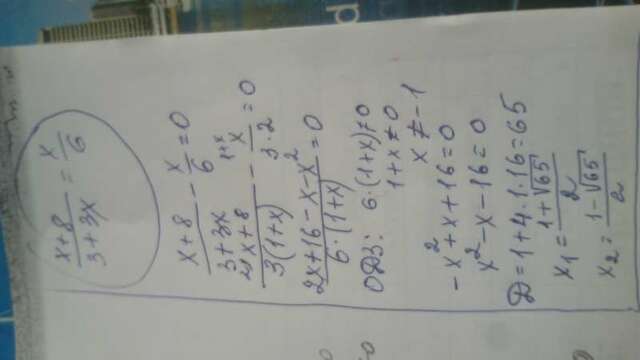 x+8/3+3x = x/6
x+8/3+3x - x/6 = 0
2\ x+8/3(1+x) - 1+x\ x/3·2 = 0
2x+16-x-x²/6·(1+x) = 0
ОДЗ: 6·(1+x)≠0
1+x≠0
x≠-1
-x²+x+16=0
x²-x-16=0
D=1+4·1·16=65
x₁=1+√65/2
x₂=1-√65/2
d